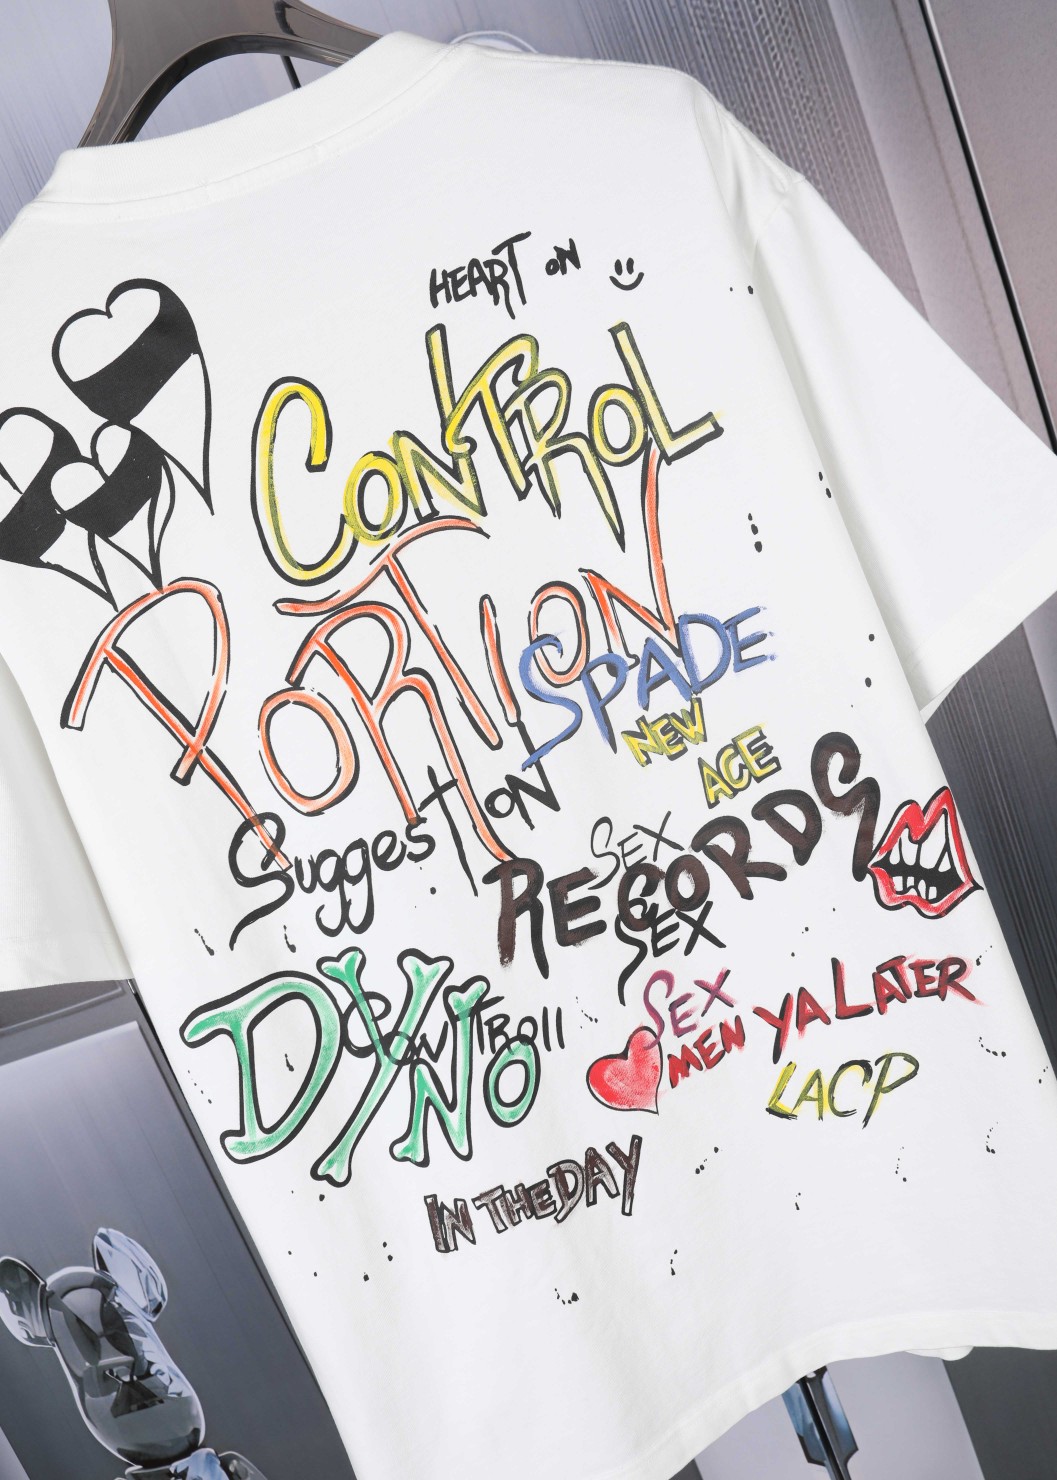 HEART ON
CONTROL
PORTION
SPADE
NEW
ACE
SuggestioN
SEX
RECORDS
SEX
DYNO
CONTROll
SEX
MEN YA LATER
LACP
IN THE DAY